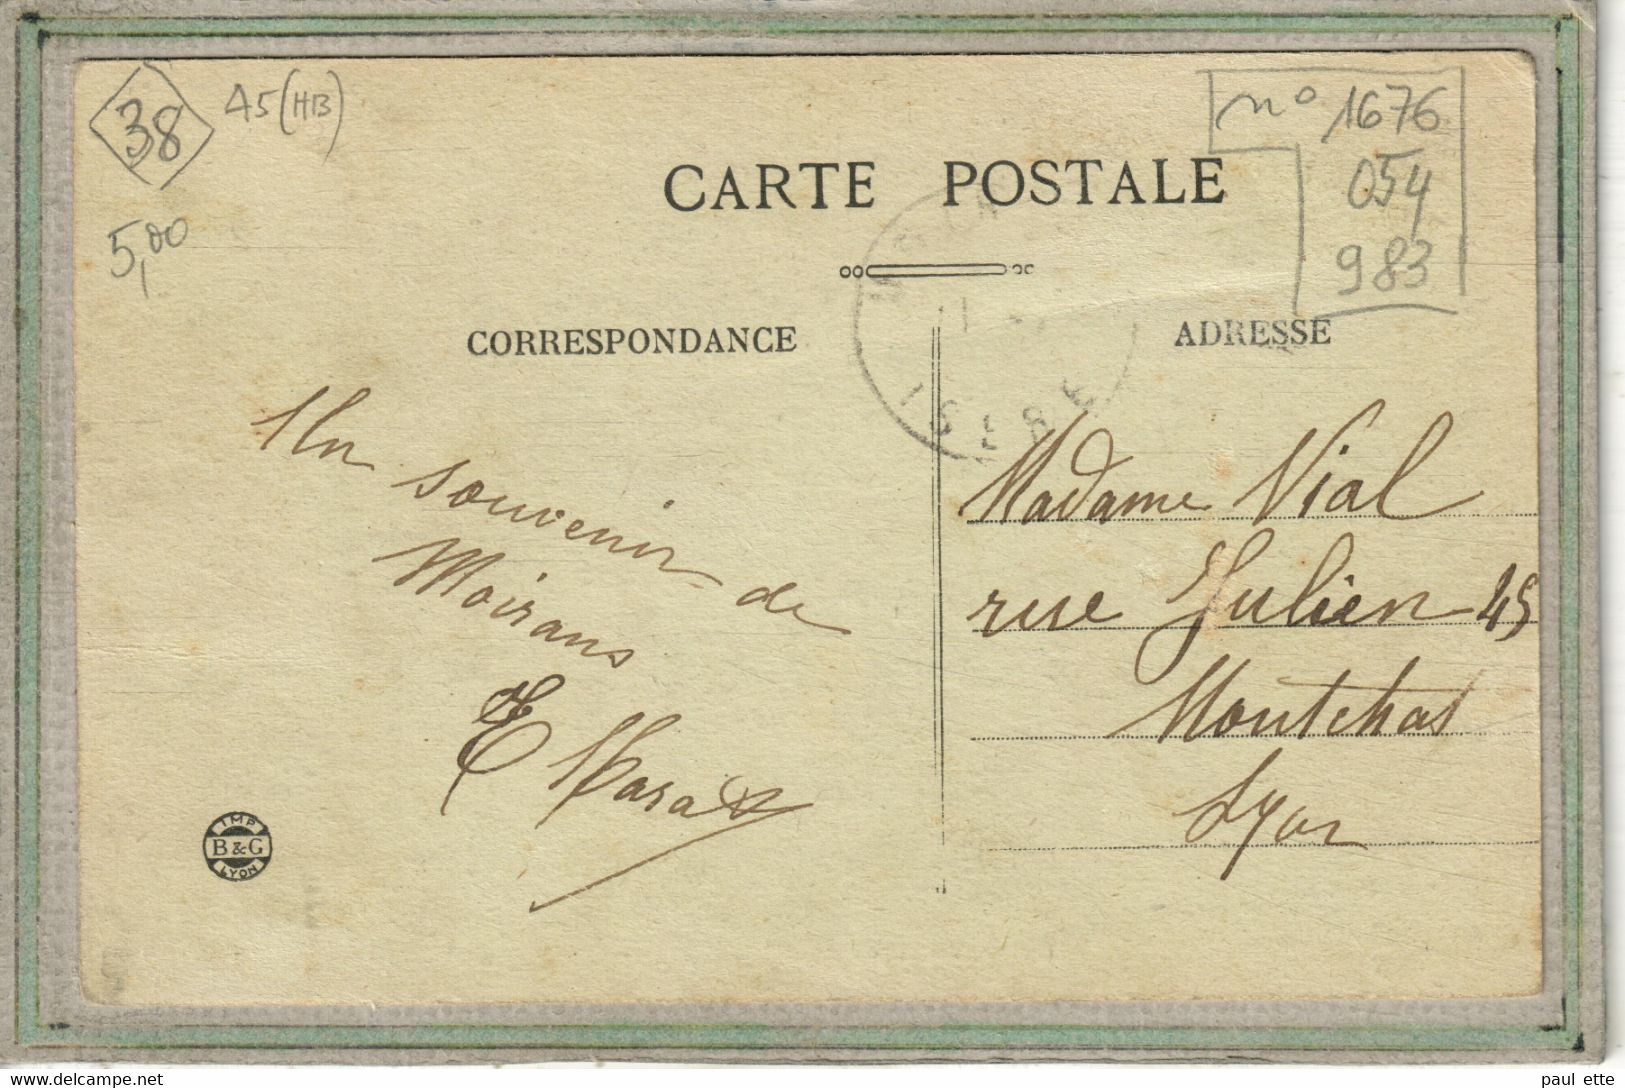 38
45(HB)
5,00
n° 1676
054
983
CARTE POSTALE
CORRESPONDANCE
ADRESSE
ISERE
Un souvenir de
Moirans
Madame Vial
rue Julien 45
Montchat
Lyon
IMP
B&G
LYON
www.delcampe.net
paul ette